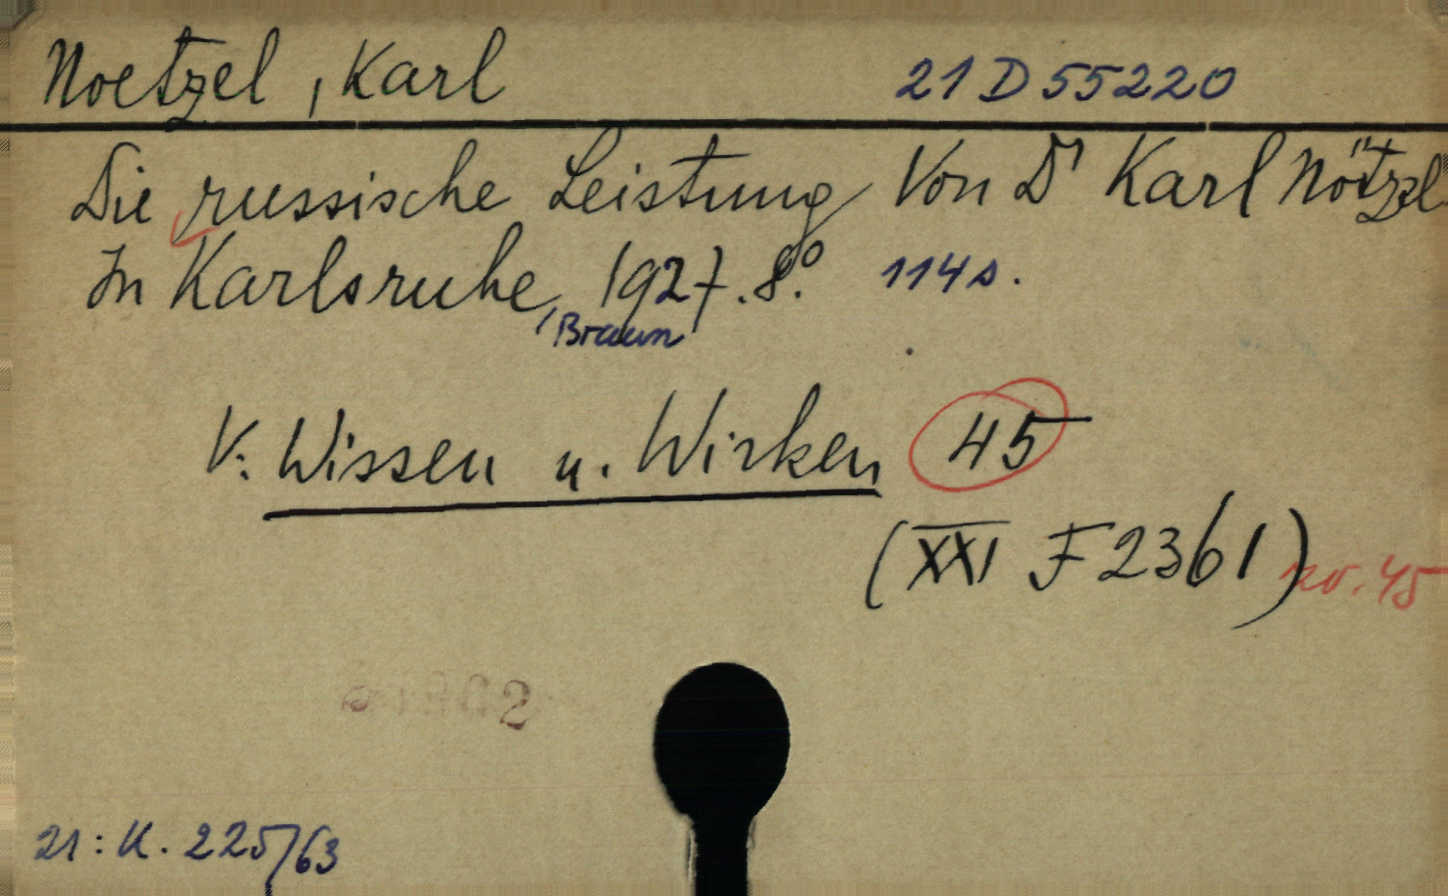 Noetzel, Karl 21 D 55220
Die russische Leistung Von Dr Karl Nötzel.
In Karlsruhe, 1927. 8.º 114 s.
, Braun
V. Wissen u. Wirken 45
(XXI F 2361) sv. 45
21: K. 225/63